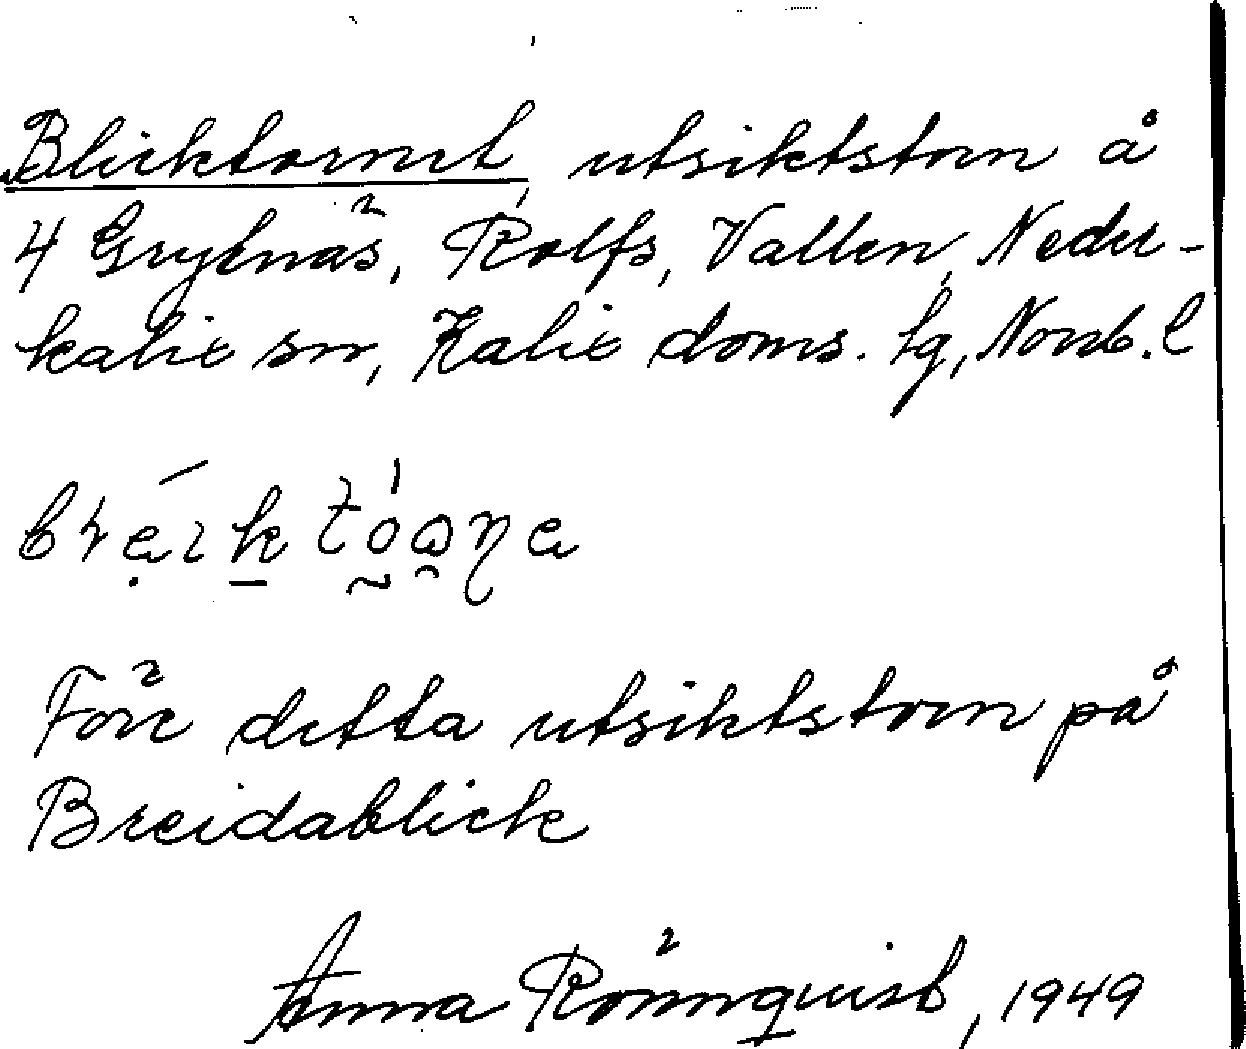 Blicktornet, utsiktstorn å
4 Grytnäs, Rolfs, Vallen, Neder-
kalix sn, Kalix doms. lg, Norrb. l
Före detta utsiktstorn på
Breidablick
Anna Rönnquist, 1949